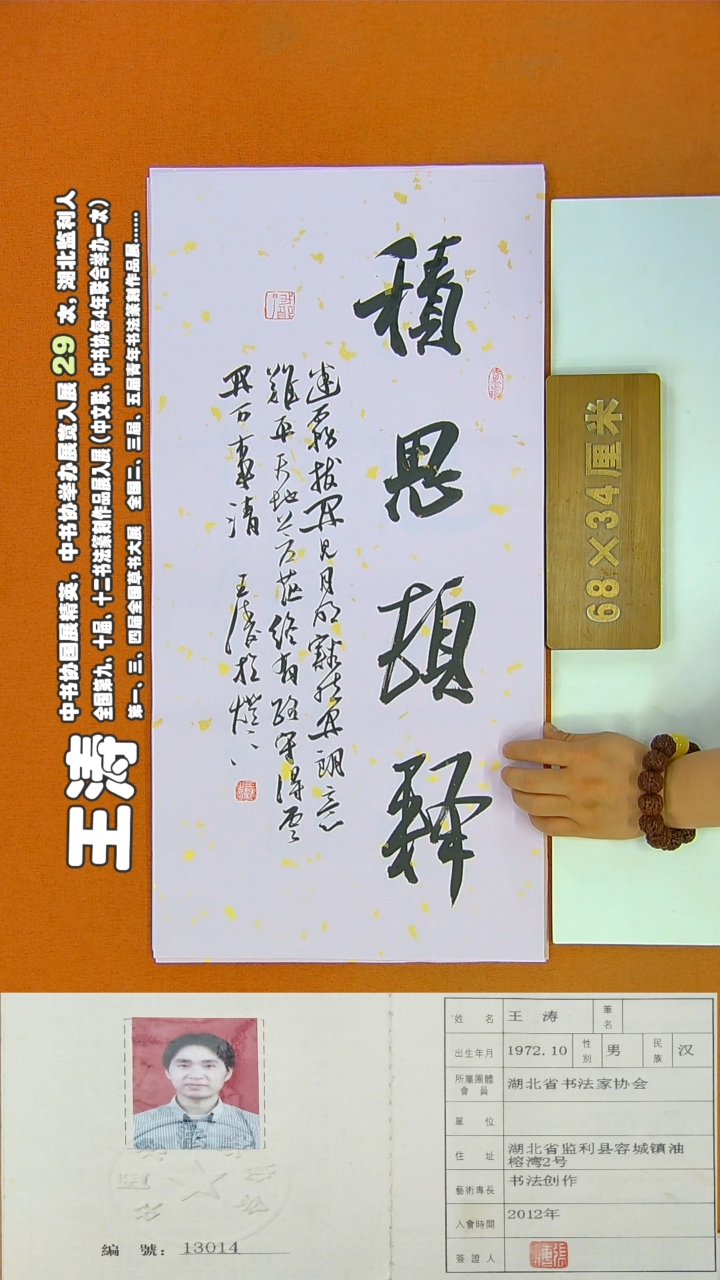 王涛
中书协国展精英，中书协举办展赛入展 29 次，湖北监利人
全国第九、十届、十二书法篆刻作品展入展（中文联、中书协每4年联合举办一次）
第一、三、四届全国草书大展 全国二、三届、五届青年书法篆刻作品展......
積思頓釋
迷霧拨開見月明豁然開朗意
難平天地蒼茫終有路守得雲
開百事清 王濤於燈下
68×34厘米
編 號：13014
姓 名 王 涛 筆名
出生年月 1972.10 性別 男 民族 汉
所屬團體會員 湖北省书法家协会
單 位
住 址 湖北省监利县容城镇油榕湾2号
藝術專長 书法创作
入會時間 2012年
簽證人